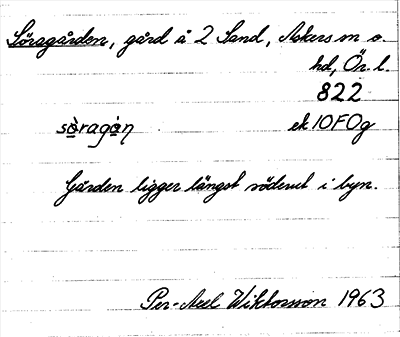 Söragården, gård å 2 Sand, Askers sn o.
hd, Ör. l.
822
sòragàn̥ ek 10F0g
Gården ligger längst söderut i byn.
Per-Axel Wiktorsson 1963